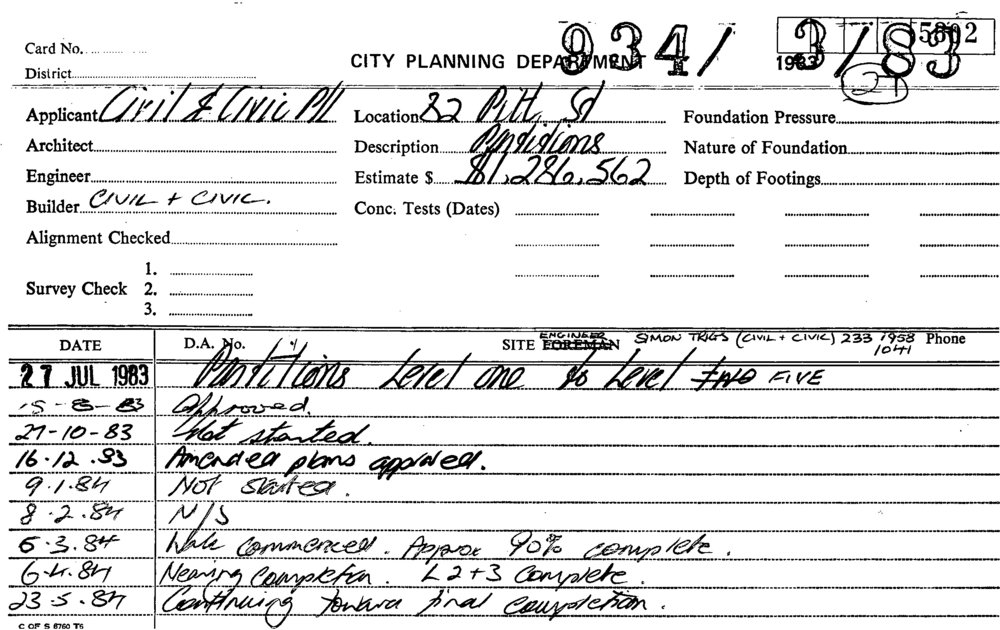 934/ 3/83
Card No.
District
CITY PLANNING DEPARTMENT
Applicant Civil & Civic P/L Location 82 Pitt St Foundation Pressure
Architect Description Partitions Nature of Foundation
Engineer Estimate $ $1,286,562 Depth of Footings
Builder CIVIL + CIVIC. Conc. Tests (Dates)
Alignment Checked
1.
Survey Check 2.
3.
DATE D.A. No. SITE FOREMAN ENGINEER SIMON TRIGS (CIVIL + CIVIC) 233 1958 Phone
1041
27 JUL 1983 Partitions Level one to Level TWO FIVE
15-8-83 Approved.
27-10-83 Not started.
16.12.83 Amended plans approved.
9.1.84 Not started.
8.2.84 N/S
6.3.84 Work commenced. Approx 90% complete.
6.4.84 Nearing completion. L 2+3 Complete.
23.5.84 Continuing toward final completion.
C OF S 6760 T6